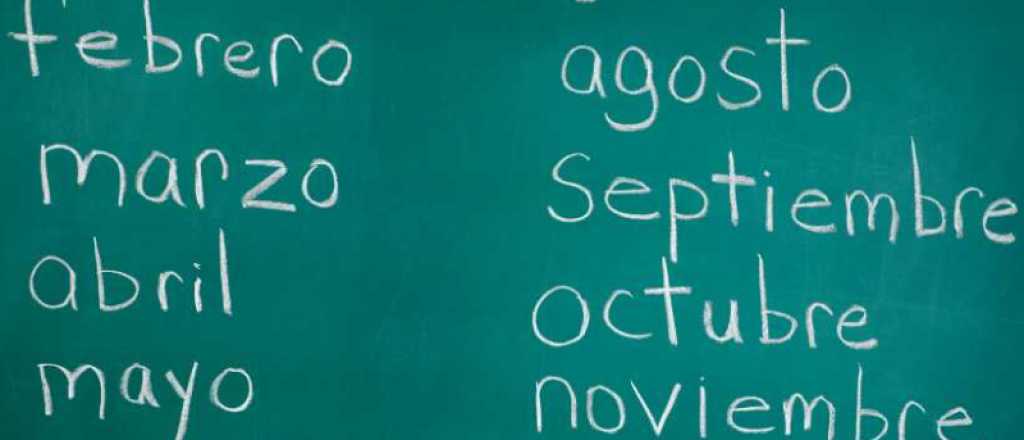 febrero
marzo
abril
mayo
agosto
Septiembre
octubre
noviembre